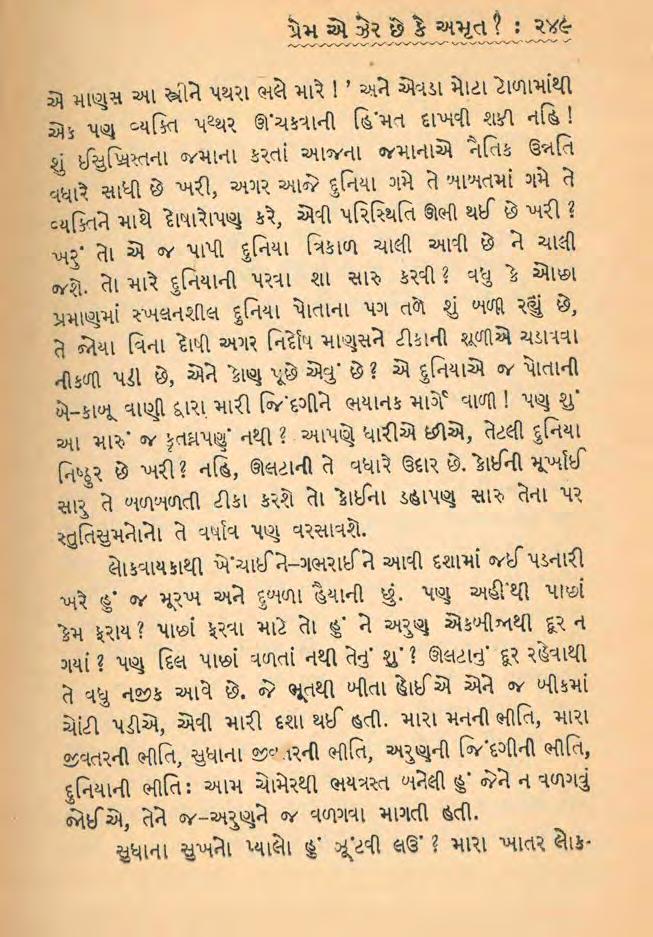 પ્રેમ એ ઝેર છે કે અમૃત? : ૨૪૯
એ માણસ આ સ્ત્રીને પથરા ભલે મારે ! ’ અને એવડા મોટા ટોળામાંથી
એક પણ વ્યક્તિ પથ્થર ઊંચકવાની હિંમત દાખવી શકી નહિ !
શું ઈસુખ્રિસ્તના જમાના કરતાં આજના જમાનાએ નૈતિક ઉન્નતિ
વધારે સાધી છે ખરી, અગર આજે દુનિયા ગમે તે બાબતમાં ગમે તે
વ્યક્તિને માથે દોષારોપણ કરે, એવી પરિસ્થિતિ ઊભી થઈ છે ખરી ?
ખરું તો એ જ પાપી દુનિયા ત્રિકાળ ચાલી આવી છે ને ચાલી
જશે. તો મારે દુનિયાની પરવા શા સારુ કરવી? વધુ કે ઓછા
પ્રમાણમાં સ્ખલનશીલ દુનિયા પોતાના પગ તળે શું બળી રહ્યું છે,
તે જોયા વિના દોષી અગર નિર્દોષ માણસને ટીકાની શૂળીએ ચડાવવા
નીકળી પડી છે, એને કોણ પૂછે એવું છે? એ દુનિયાએ જ પોતાની
બે-કાબૂ વાણી દ્વારા મારી જિંદગીને ભયાનક માર્ગે વાળી ! પણ શું
આ મારું જ કૃતઘ્નપણું નથી ? આપણે ધારીએ છીએ, તેટલી દુનિયા
નિષ્ઠુર છે ખરી? નહિ, ઊલટાની તે વધારે ઉદાર છે. કોઈની મૂર્ખાઈ
સારુ તે બળબળતી ટીકા કરશે તો કોઈના ડહાપણ સારુ તેના પર
સ્તુતિસુમનોનો તે વર્ષાવ પણ વરસાવશે.
લોકવાયકાથી ખેંચાઈને-ગભરાઈને આવી દશામાં જઈ પડનારી
ખરે હું જ મૂરખ અને દુબળા હૈયાની છું. પણ અહીંથી પાછાં
કેમ ફરાય? પાછાં ફરવા માટે તો હું ને અરુણ એકબીજાથી દૂર ન
ગયાં ? પણ દિલ પાછાં વળતાં નથી તેનું શું ? ઊલટાનું દૂર રહેવાથી
તે વધુ નજીક આવે છે. જે ભૂતથી બીતા હોઈએ એને જ બીકમાં
ચોંટી પડીએ, એવી મારી દશા થઈ હતી. મારા મનની ભીતિ, મારા
જીવતરની ભીતિ, સુધાના જીવતરની ભીતિ, અરુણની જિંદગીની ભીતિ,
દુનિયાની ભીતિ: આમ ચોમેરથી ભયત્રસ્ત બનેલી હું જેને ન વળગવું
જોઈએ, તેને જ-અરુણને જ વળગવા માગતી હતી.
સુધાના સુખનો પ્યાલો હું ઝૂંટવી લઉં ? મારા ખાતર લોક-